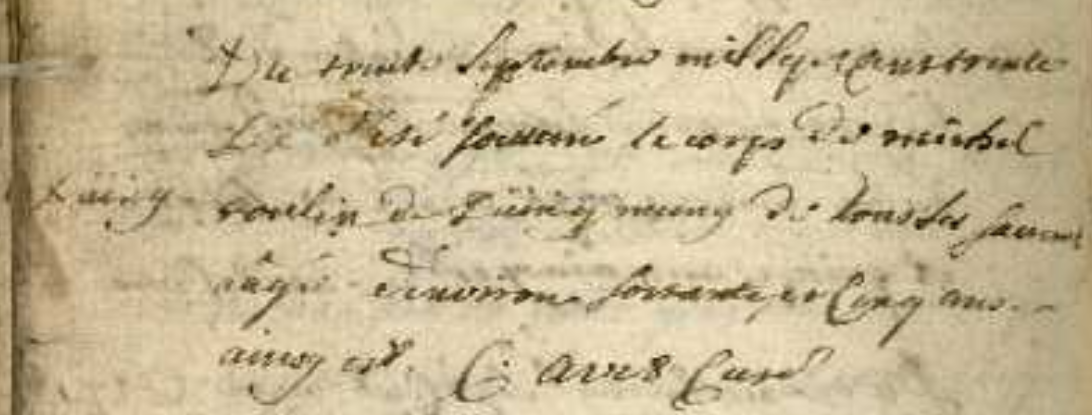 Du trente Septembre mil sept cent trente
six a esté Inhumé le corps de michel
roulin de muny de tous les sacrem
aagé d'environ soixante et Cinq ans.
ainsy est. C: Curé